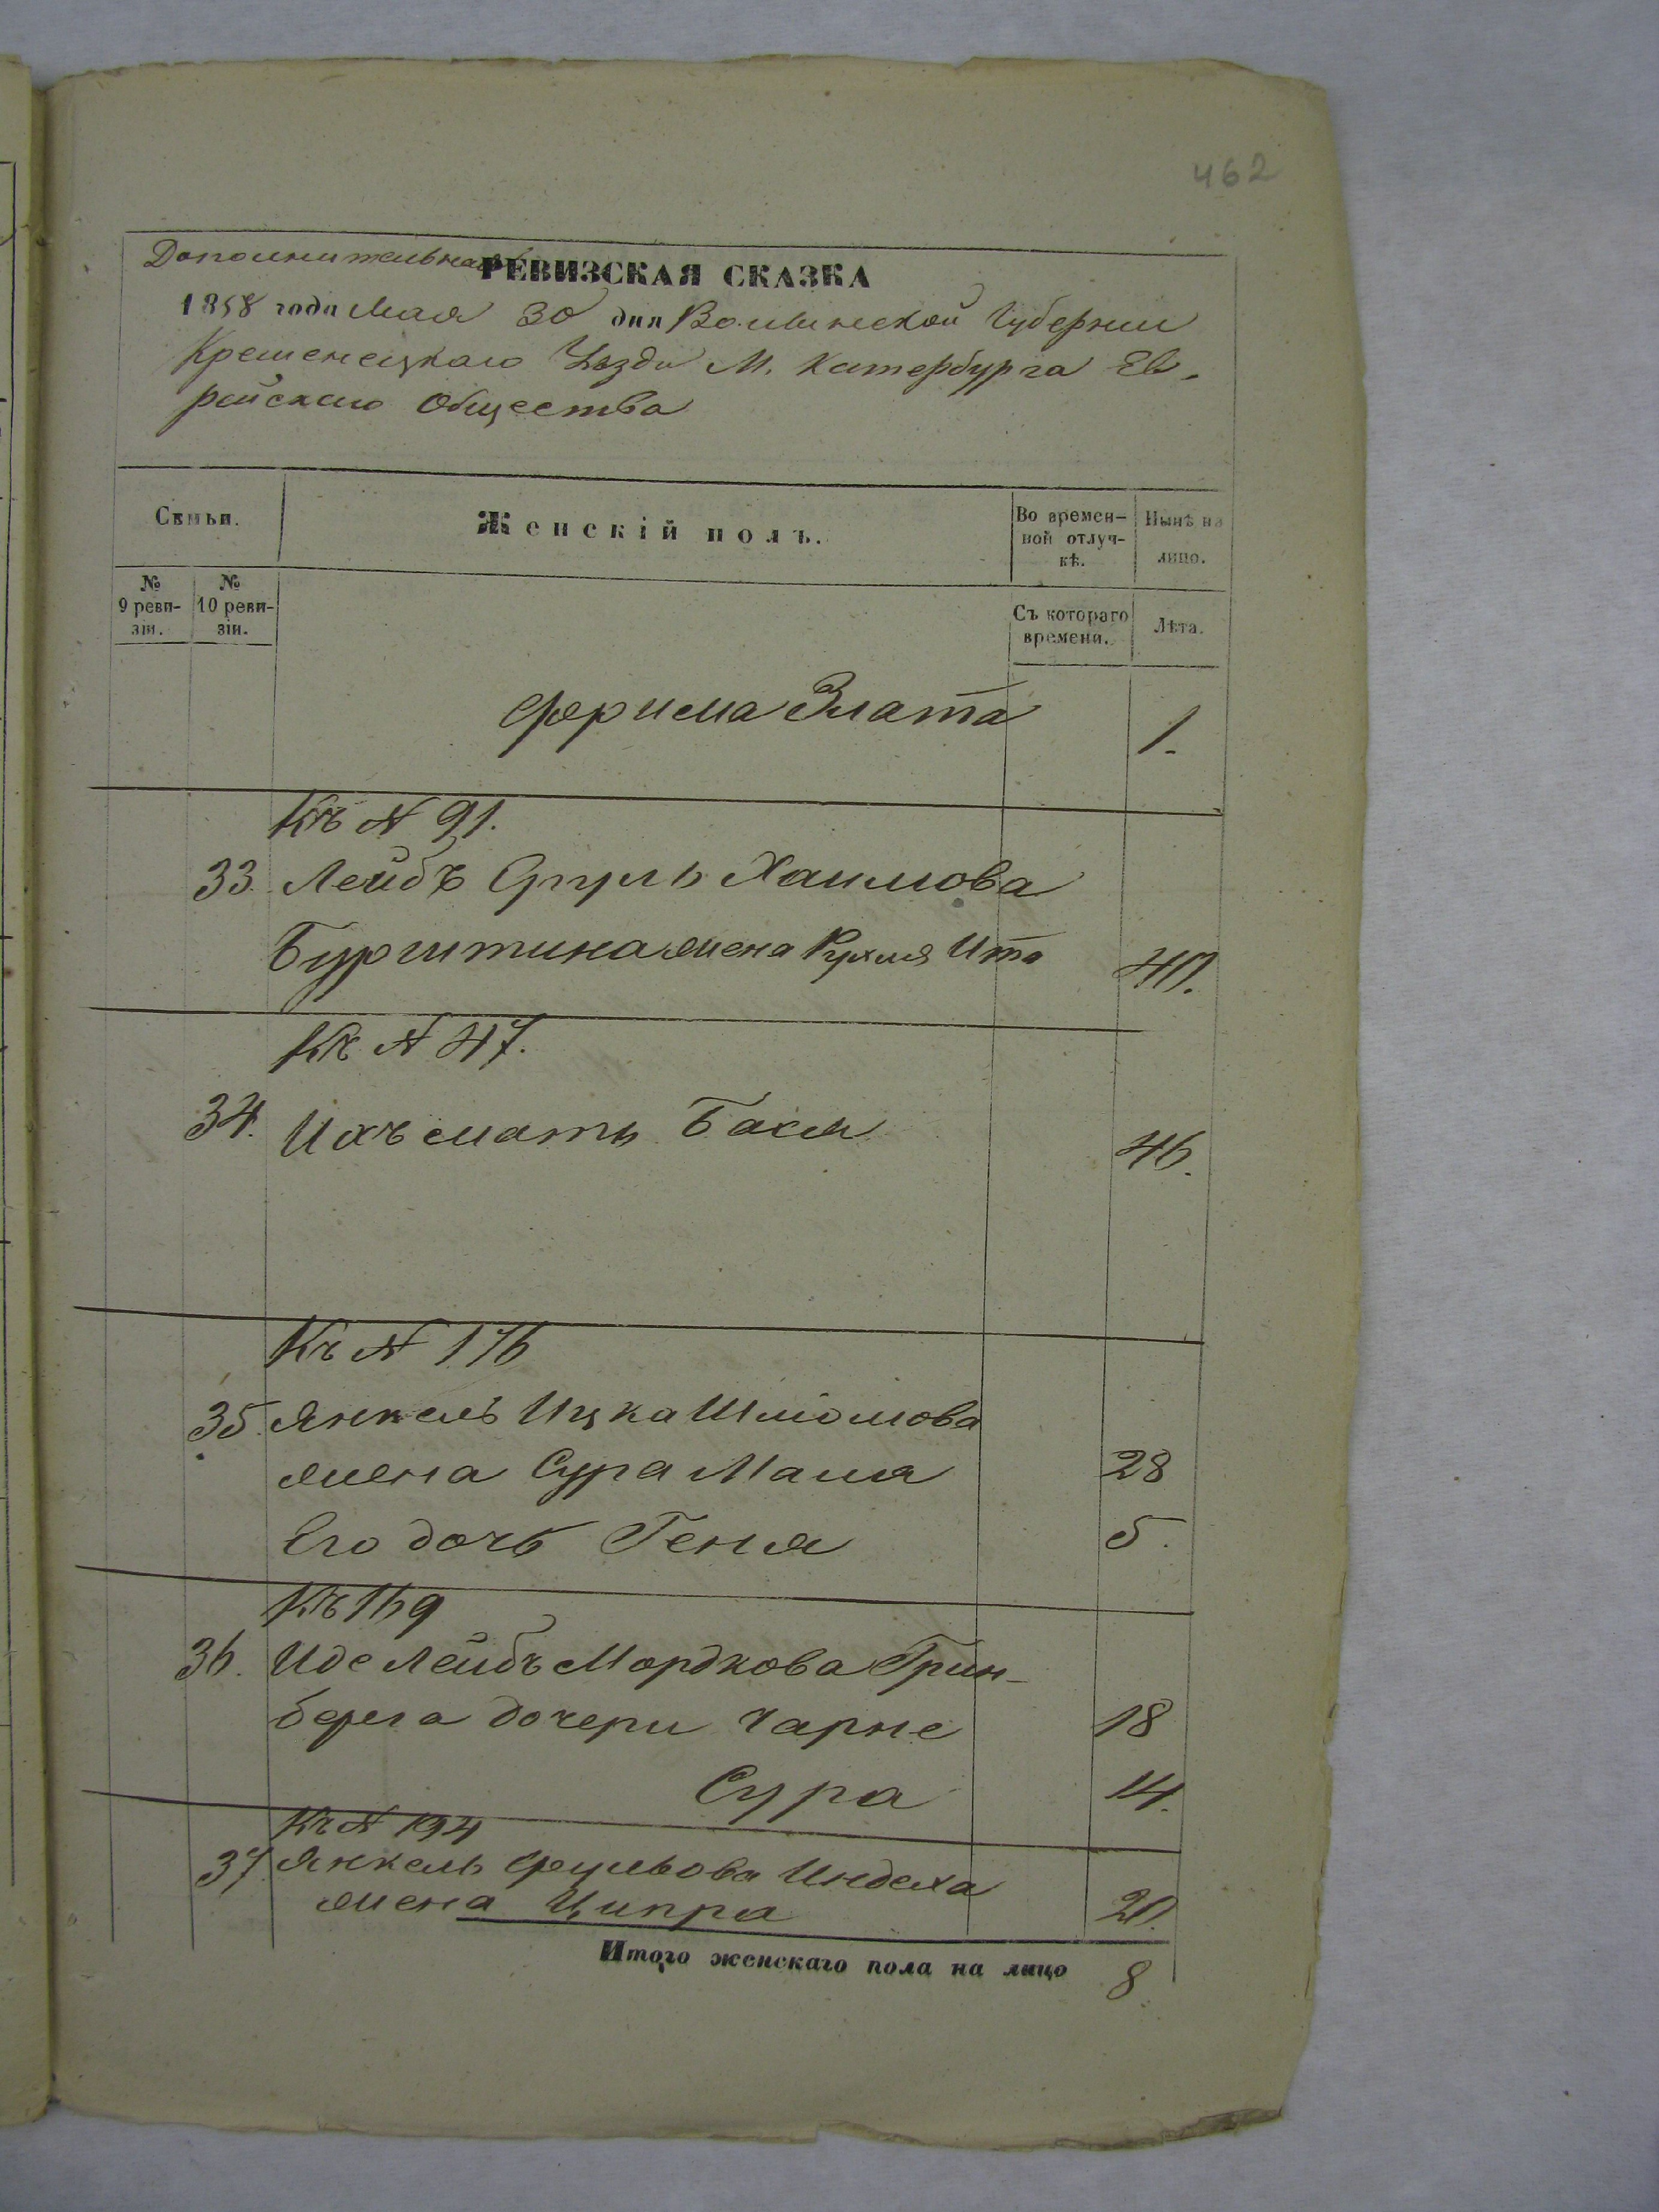 462
Дополнительная РЕВИЗСКАЯ СКАЗКА
1858 года Мая 30 дня Волынской Губернии
Кременецкаго Уезда М. Катербурга Ев-
рейскаго Общества
Сѣмьи.
Женскій полъ.
Во времен-
ной отлуч-
кѣ.
Нынѣ на
лицо.
№
9 реви-
зіи.
№
10 реви-
зіи.
Съ котораго
времени.
Лѣта.
Фрима Злата 1.
Къ N 91.
33. Лейбъ Сруль Хаимова
Бурштина жена Рухля Ита 40.
Къ N 47.
34. Ихъ мать Бася 46.
Къ N 176
35. Янкель Ицка Шліомова
жена Сура Маля 28
Его дочь Геня 5.
Къ 169
36. Иде Лейбъ Мордкова Грин-
берга дочери Чарне 18
Сура 14.
Къ N 194
37. Янкель жена Ципра 20.
Итого женскаго пола на лицо 8